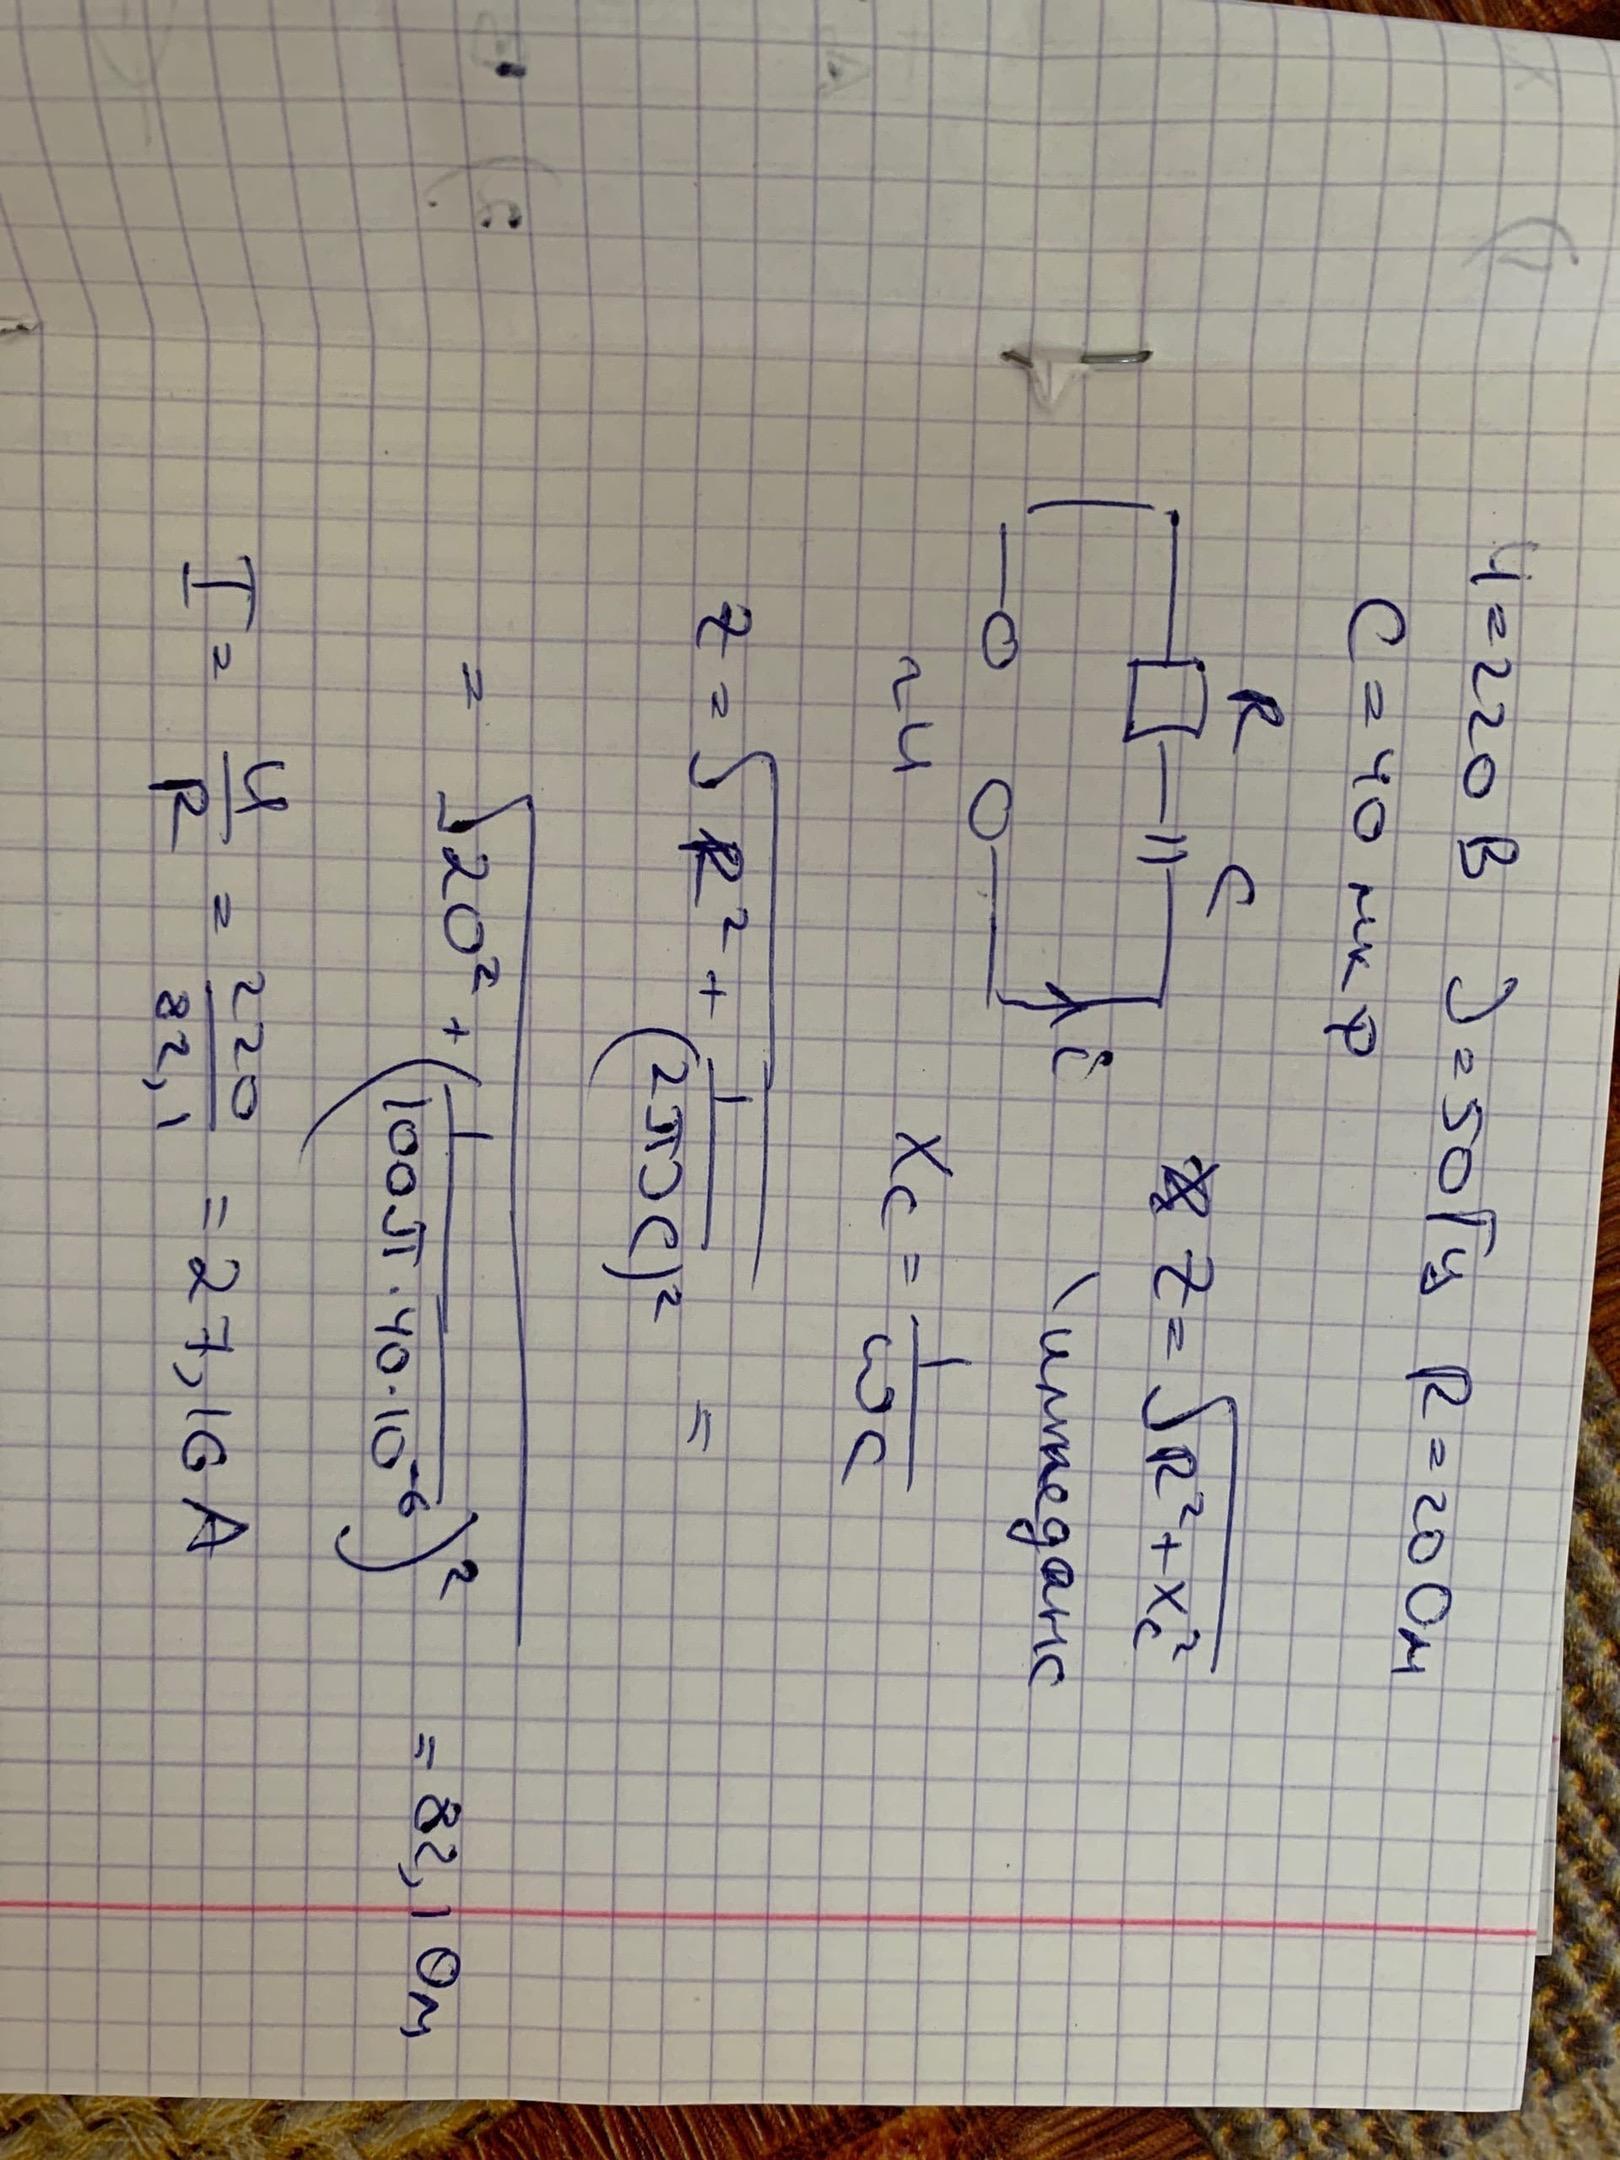 U=220 В ν=50Гц R=20 Ом
C=40 мкF
R C
i
~U
Z=√R²+Xc²
(импеданс
Xc = 1/ωC
Z = √R² + 1/(2πνC)² =
= √20² + (1/100π·40·10⁻⁶)² = 82,1 Ом
I = U/R = 220/82,1 = 27,16 A